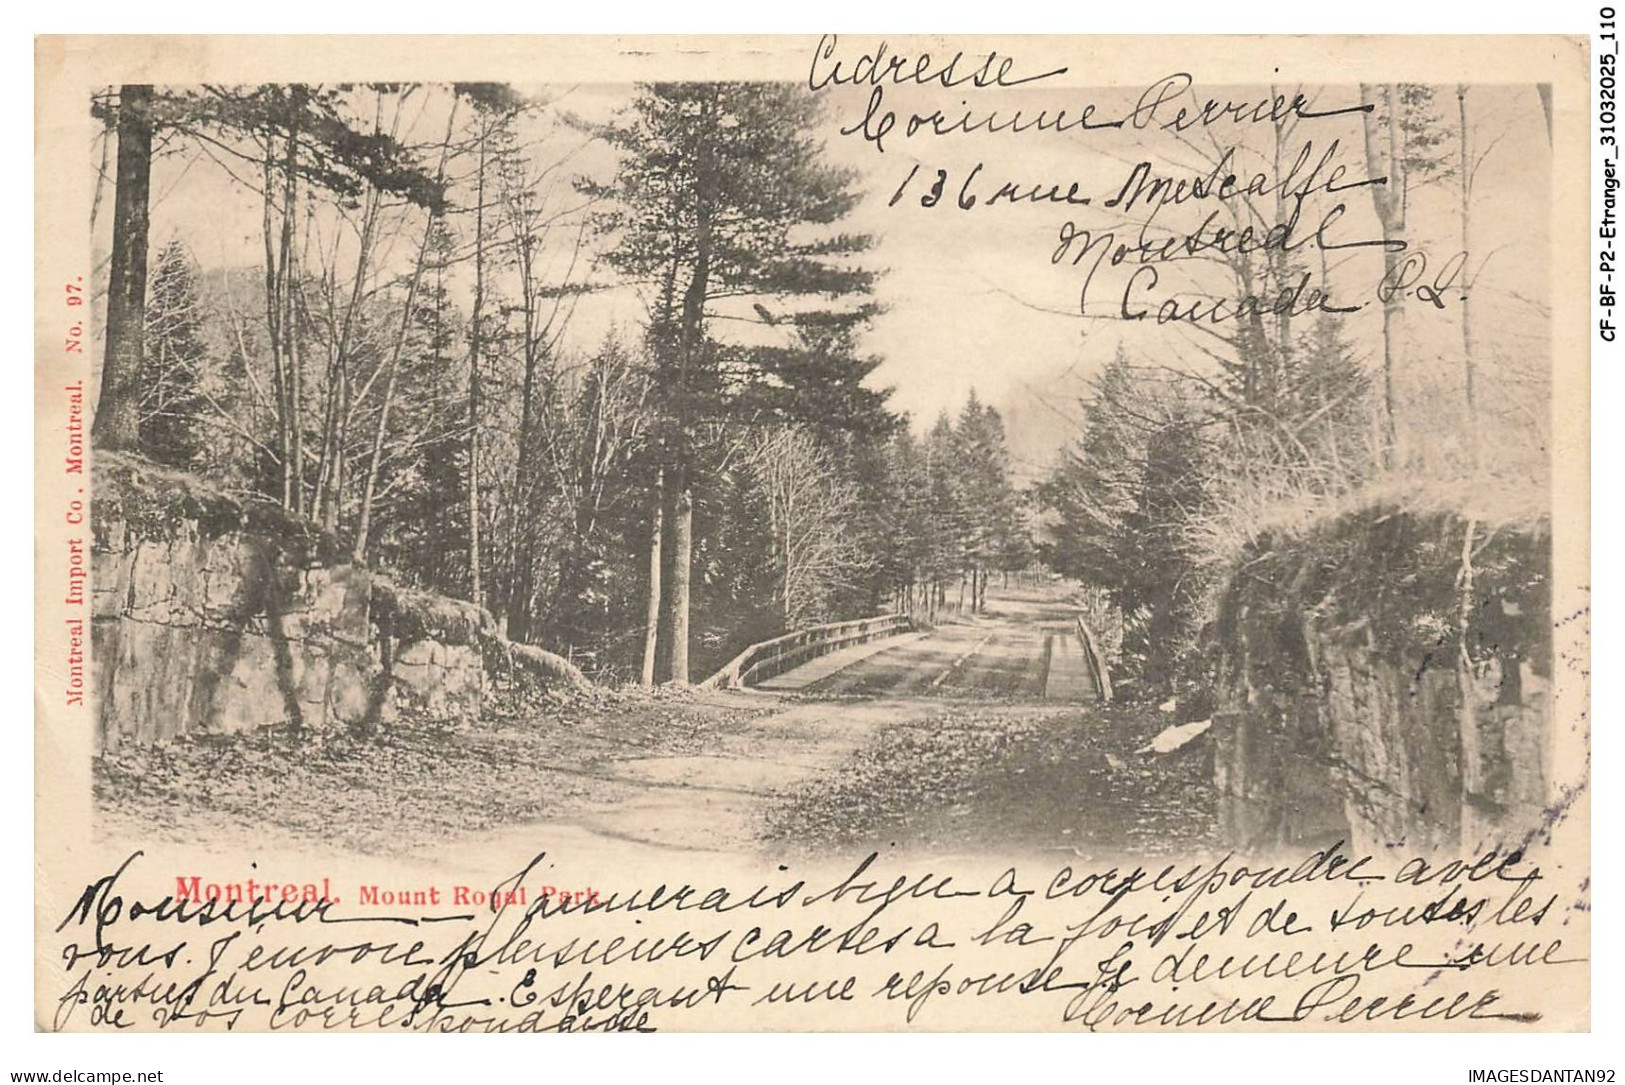 Adresse
Corinne Perrier
136 rue Metcalfe
Montreal
Canada. P.Q.
Montreal Import Co, Montreal. No. 97.
Montreal. Mount Royal Park.
Monsieur — J'aimerais bien a correspondre avec
vous. J'envoie plusieurs cartes a la fois et de toutes les
parties du Canada. Esperant une reponse Je demeure une
de vos correspondante
Corinne Perrier
CF-BF-P2-Etranger_31032025_110
delcampe.net
IMAGESDANTAN92